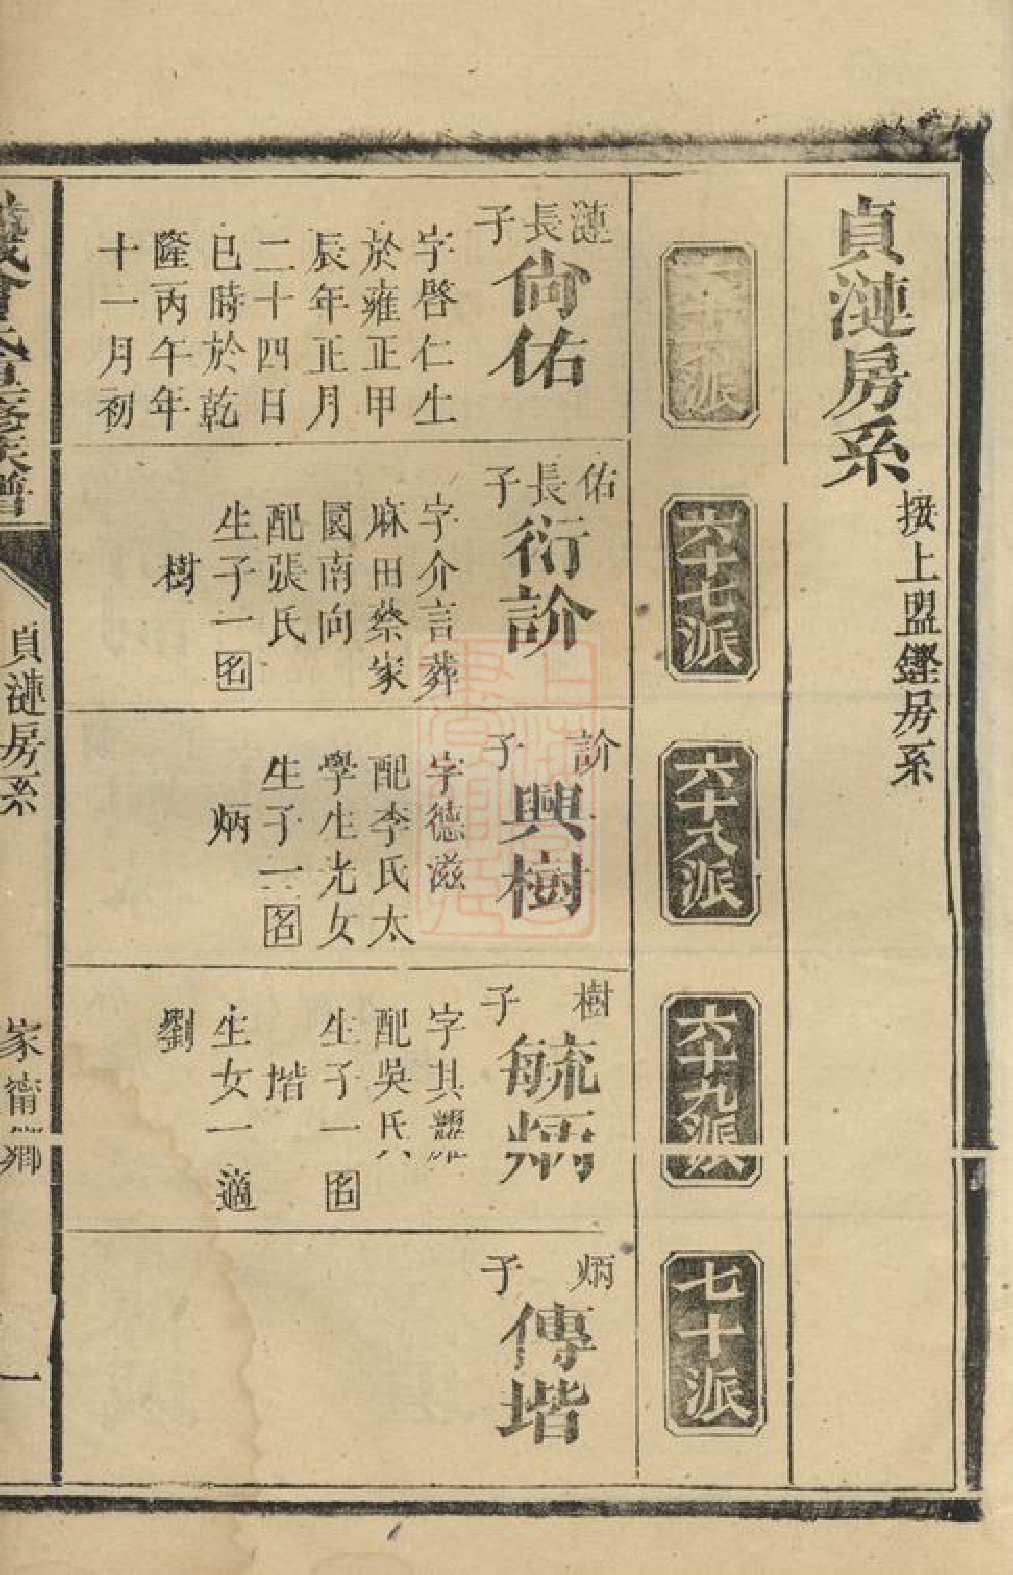 貞漣房系
接上盟鏗房系
六十七派
六十八派
六十九派
七十派
漣長子
尙佑
字啓仁生
於雍正甲
辰年正月
二十四日
巳時於乾
隆丙午年
十一月初
佑長子
衍訜
字介言葬
麻田蔡家
園南向
配張氏
生子一名
樹
訜子
興樹
字德滋
配李氏太
學生光女
生子一名
炳
樹子
毓炳
字其
配吳氏
生子一名
堦
生女一適
劉
炳子
傳堦
氏重修族譜
貞漣房系
一